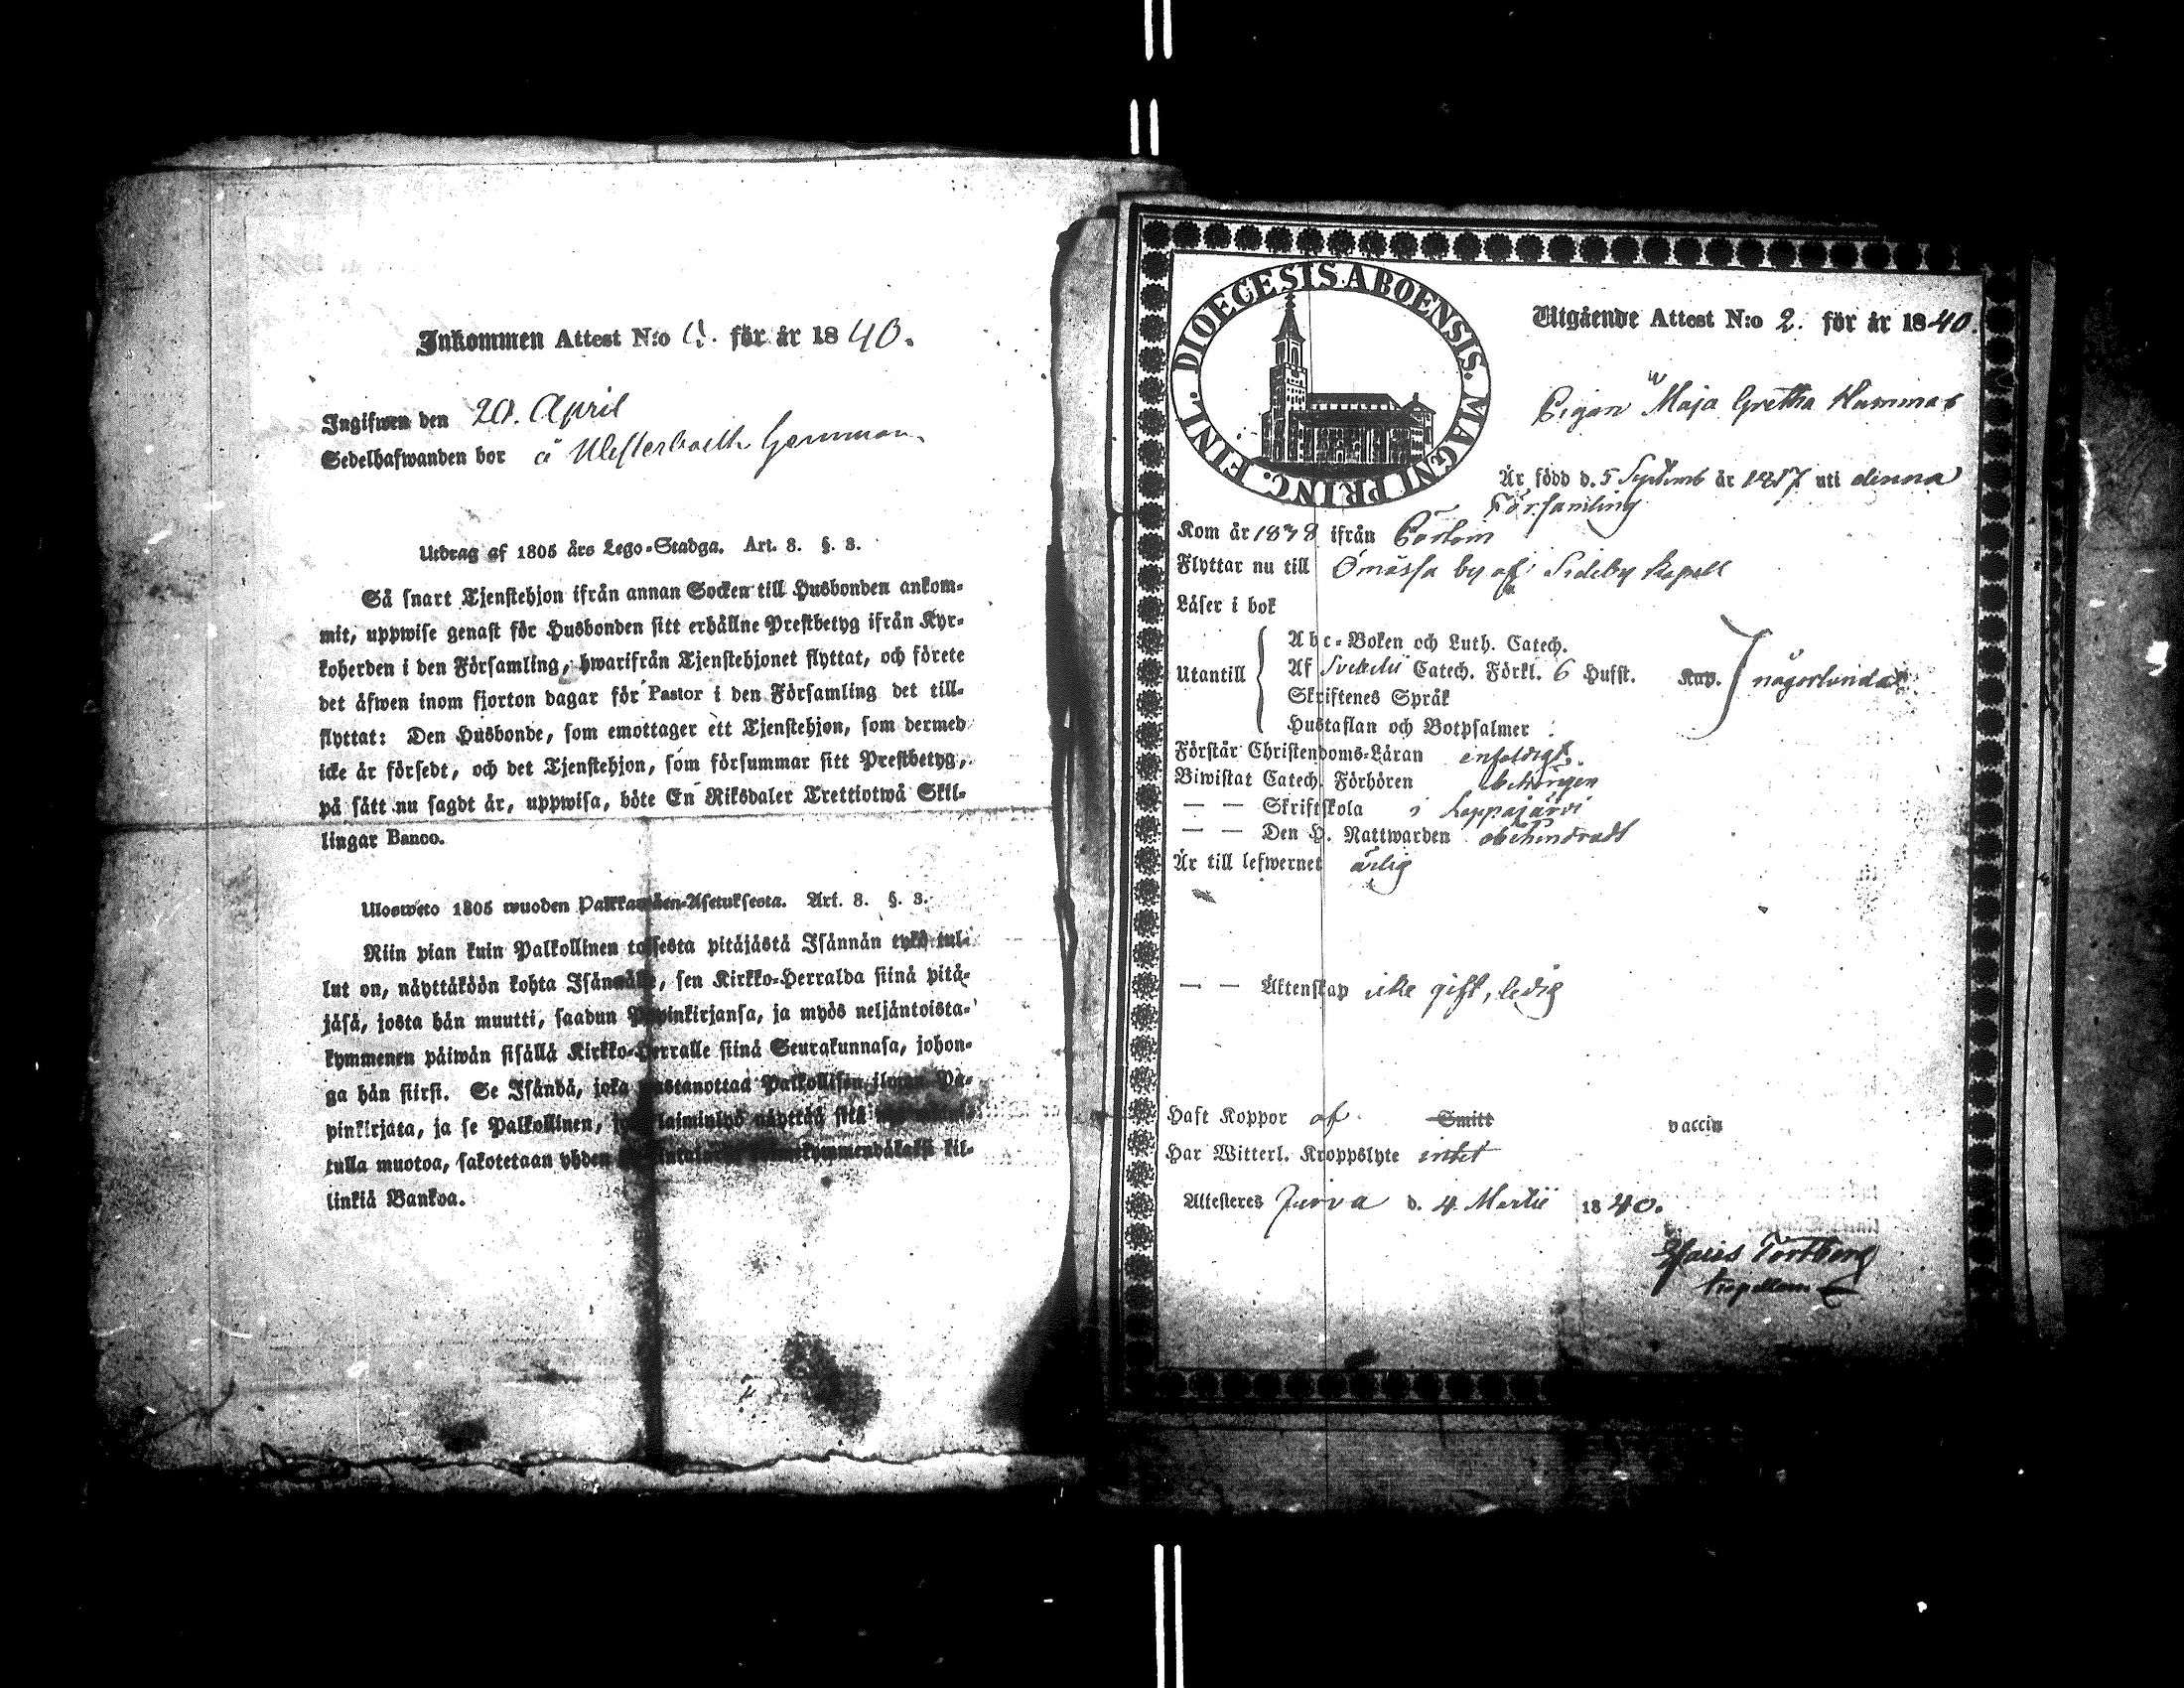 Inkommen Attest N:o för år 1840.
Ingifwen den 20. April
Sedelhafwanden bor å
Utdrag af 1805 års Lego-Stadga. Art. 8. §. 3.
Så snart Tjenstehjon ifrån annan Socken till Husbonden ankom-
mit, uppwise genast för Husbonden sitt erhållne Prestbetyg ifrån Kyr-
koherden i den Församling, hwarifrån Tjenstehjonet flyttat, och förete
det äfwen inom fjorton dagar för Pastor i den Församling det till-
flyttat: Den Husbonde, som emottager ett Tjenstehjon, som dermed
icke är försedt, och det Tjenstehjon, som försummar sitt Prestbetyg,
på sätt nu sagdt är, uppwisa, böte En Riksdaler Trettiotwå Skil-
lingar Banco.
Uloswеto 1805 wuoden Palkkawäen-Asetuksesta. Art. 8. §. 3.
Niin pian kuin Palkollinen toisesta pitäjästä Isännän tykö tul-
lut on, näyttäköön kohta Isännälle, sen Kirkko-Herralda siinä pitä-
jäsä, josta hän muutti, saadun Papinkirjansa, ja myös neljäntoista-
kymmenen päiwän sisällä Kirkko-Herralle siinä Seurakunnasa, johon-
ga hän siirsi. Se Isändä, joka wastanottaa Palkollisen ilman Pa-
pinkirjata, ja se Palkollinen, joka laiminlyö näyttää sitä
tulla muotoa, sakotetaan yhden kil-
linkiä Bankoa.
DIOECESIS ABOENSIS. MAGNI PRINC. FINL.
Utgående Attest N:o 2. för år 1840.
Pigan Maja Gretha Hammas
Är född d. 5 Septemb år 1817 uti denna
Församling
Kom år 1838 ifrån
Flyttar nu till Ömossa by af Sideby Kapell
Läser i bok
Utantill
Abc-Boken och Luth. Catech.
Af Svebelii Catech. Förkl. 6 Hufst. Kap. någorlunda
Skriftenes Språk
Hustaflan och Botpsalmer
Förstår Christendoms-Läran enfaldigt.
Biwistat Catech. Förhören behörigen
— — Skriftskola i Lappajärvi
— — Den H. Nattwarden obehindradt
Är till lefwernet ärlig
— — Äktenskap icke gift, ledig
Haft Koppor af Smitt vaccin
Har Witterl. Kroppslyte intet
Attesteres Jurva d. 4 Martii 1840.
Tortberg
Kapellan